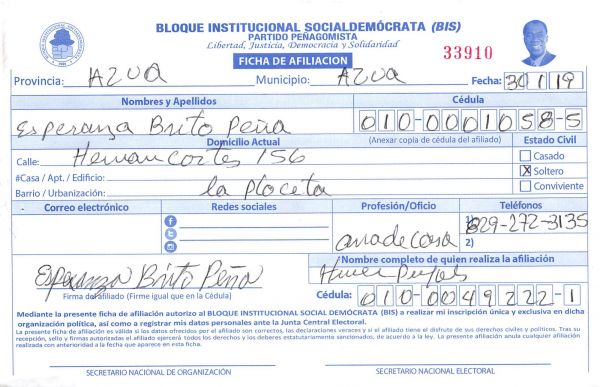 BLOQUE INSTITUCIONAL SOCIALDEMÓCRATA (BIS)
PARTIDO PEÑAGOMISTA
Libertad, Justicia, Democracia y Solidaridad
FICHA DE AFILIACION
33910
Provincia: AZUA Municipio: AZUA Fecha: 30/1/19
Nombres y Apellidos Cédula
Esperanza Brito Peña 010-0001058-5
Domicilio Actual (Anexar copia de cédula del afiliado) Estado Civil
Calle: Hernan Cortes 156 Casado
#Casa / Apt. / Edificio: X Soltero
Barrio / Urbanización: la Placeta Conviviente
Correo electrónico Redes sociales Profesión/Oficio Teléfonos
ama de casa 1) 829-272-3135
2)
Nombre completo de quien realiza la afiliación
Esperanza Brito Peña
Firma del afiliado (Firme igual que en la Cédula) Cédula: 010-0049222-1
Mediante la presente ficha de afiliación autorizo al BLOQUE INSTITUCIONAL SOCIAL DEMÓCRATA (BIS) a realizar mi inscripción única y exclusiva en dicha
organización política, así como a registrar mis datos personales ante la Junta Central Electoral.
La presente ficha de afiliación es válida si los datos ofrecidos por el afiliado son correctos, las declaraciones veraces y si el afiliado tiene el disfrute de sus derechos civiles y políticos. Tras su
recepción, sello y firmas autorizadas el afiliado ejercerá todos los derechos y los deberes estatutariamente sancionados, de acuerdo a la ley. La presente afiliación anula cualquier afiliación
realizada con anterioridad a la fecha que aparece en esta ficha.
SECRETARIO NACIONAL DE ORGANIZACIÓN SECRETARIO NACIONAL ELECTORAL